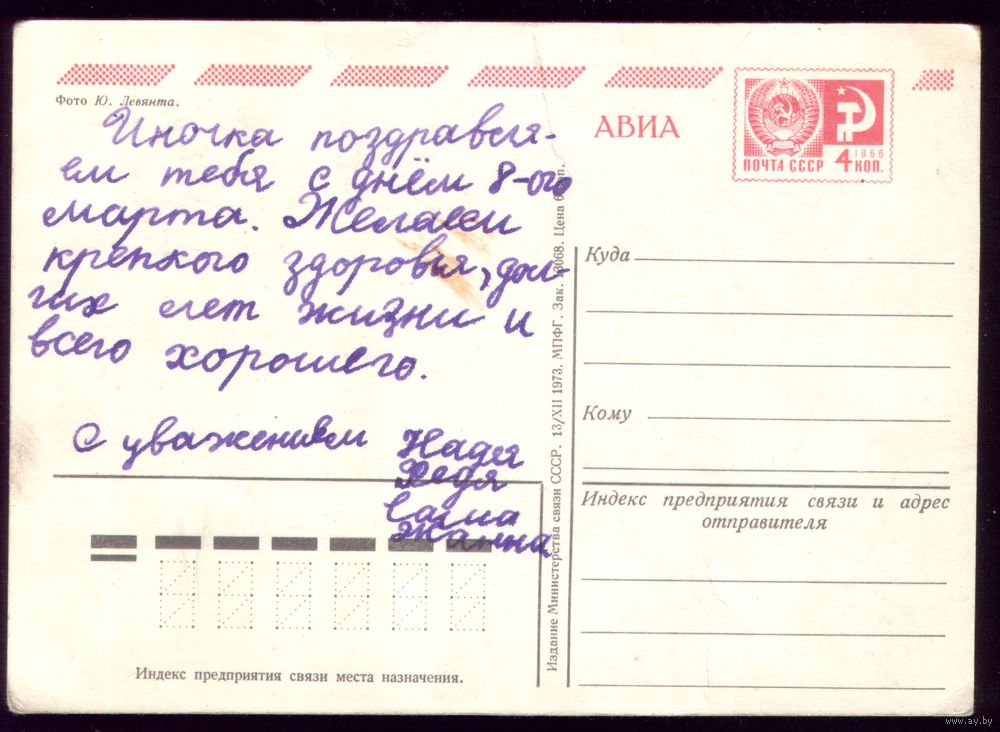 Фото Ю. Левянта.
АВИА
1966
ПОЧТА СССР 4 КОП.
Иночка поздравля-
ем тебя с днём 8-ого
марта. Желаем
крепкого здоровья, дол-
гих лет жизни и
всего хорошего.
С уважением Надя
Федя
Саша
Жанна
Индекс предприятия связи места назначения.
Издание Министерства связи СССР. 13/XII 1973. МПФГ. Зак. 13068. Цена
Куда
Кому
Индекс предприятия связи и адрес
отправителя
www.ay.by